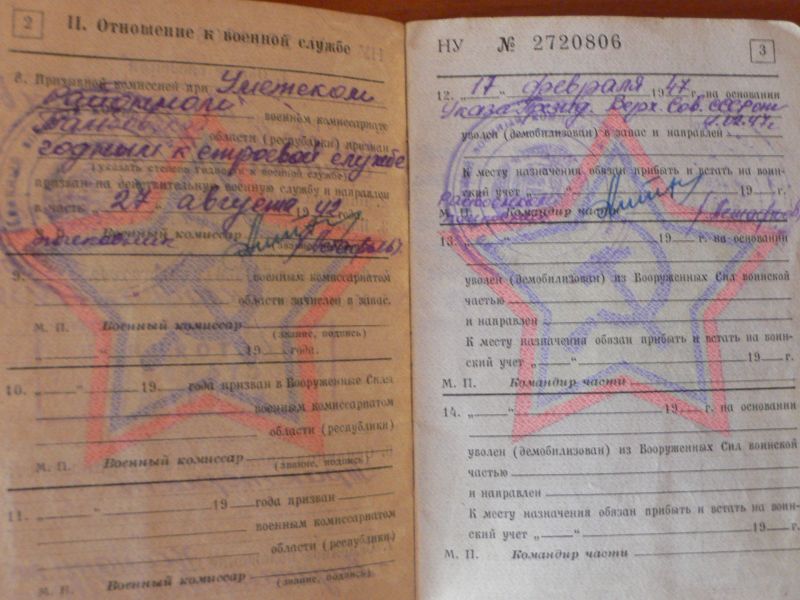 2
II. Отношение к военной службе
8. Призывной комиссией при Уметском
районном
военном комиссариате
Тамбовской области (республики) признан
годным к строевой службе
(указать степень годности к военной службе)
призван на действительную военную службу и направлен
в часть „27" августа 1942 года.
М. П. Военный комиссар
9.
военным комиссариатом
области зачислен в запас.
М. П. Военный комиссар
(звание, подпись)
„ " 19 года.
10. „ " 19 года призван в Вооруженные Силы
военным комиссариатом
области (республики)
М. П. Военный комиссар
(звание, подпись)
11. „ " 19 года призван
военным комиссариатом
области (республики)
М. П. Военный комиссар
(звание, подпись)
НУ № 2720806
3
12. „17" февраля 1947 г. на основании
Указа Презид. Верх. Сов. СССР от
уволен (демобилизован) в запас и направлен
К месту назначения обязан прибыть и встать на воин-
ский учет „ " 19 г.
М. П. Командир части
13. „ " 19 г. на основании
уволен (демобилизован) из Вооруженных Сил воинской
частью
и направлен
К месту назначения обязан прибыть и встать на воин-
ский учет „ " 19 г.
М. П. Командир части
14. „ " 19 г. на основании
уволен (демобилизован) из Вооруженных Сил воинской
частью
и направлен
К месту назначения обязан прибыть и встать на воин-
ский учет „ " 19 г.
М. П. Командир части